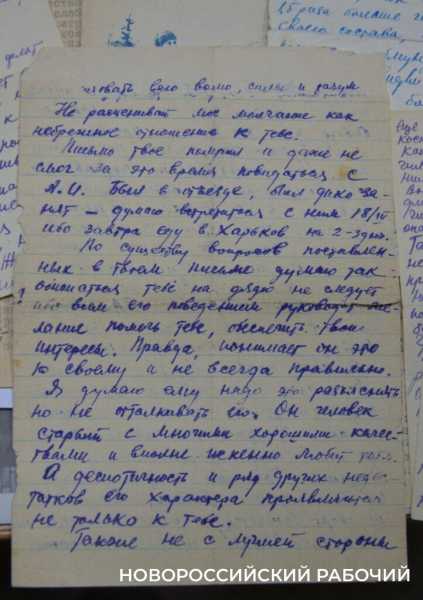 всю волю, силы и разум
Не расценивай мое молчание как
небрежное отношение к тебе.
Письмо твое получил и даже не
смог за это время повидаться с
А.И. Был в отъезде, был дико за-
нят – думаю встретиться с ним 18/VI
ибо завтра еду в Харьков на 2-3 дня.
По существу вопросов поставлен-
ных в твоем письме думаю так –
обижаться тебе на дядю не следует
ибо всем его поведением руководит же-
лание помочь тебе, обеспечить твои
интересы. Правда, понимает он это
по своему и не всегда правильно.
Я думаю ему надо это разъяснять
но не отталкивать его. Он человек
старый с многими хорошими качес-
твами и вполне искренно любит тебя.
А деспотичность и ряд других недос-
татков его характера проявляются
не только к тебе.
Также не с лучшей стороны
НОВОРОССИЙСКИЙ РАБОЧИЙ